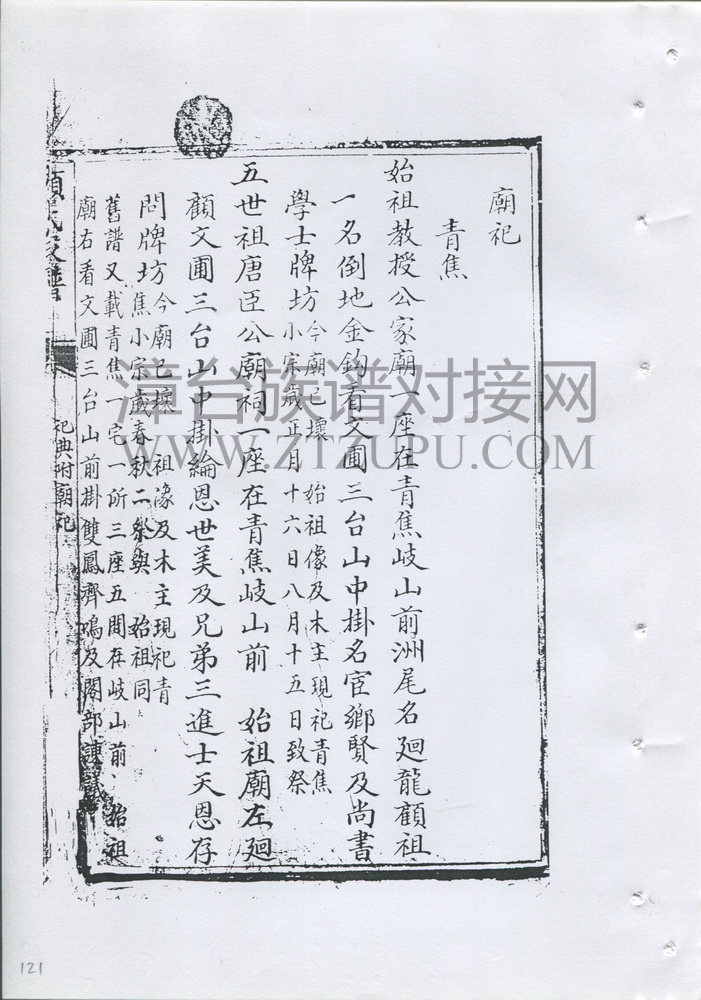 廟祀
青焦
始祖教授公家廟一座在青焦岐山前洲尾名廻龍顧祖
一名倒地金鈎看文圃三台山中掛名宦鄉賢及尚書
學士牌坊今廟已壞 始祖像及木主現祀青焦
小宗歲正月十六日八月十五日致祭
五世祖唐臣公廟祠一座在青焦岐山前 始祖廟左廻
顧文圃三台山中掛綸恩世美及兄弟三進士天恩存
問牌坊今廟已壞 祖像及木主現祀青
焦小宗歲春秋二祭與 始祖同
舊譜又載青焦一宅一所三座五間在岐山前、始祖
廟右看文圃三台山前掛雙鳳齊鳴及閣部諫
顏氏家譜
祀典附廟祀
漳台族谱对接网
WWW.ZTZUPU.COM
121